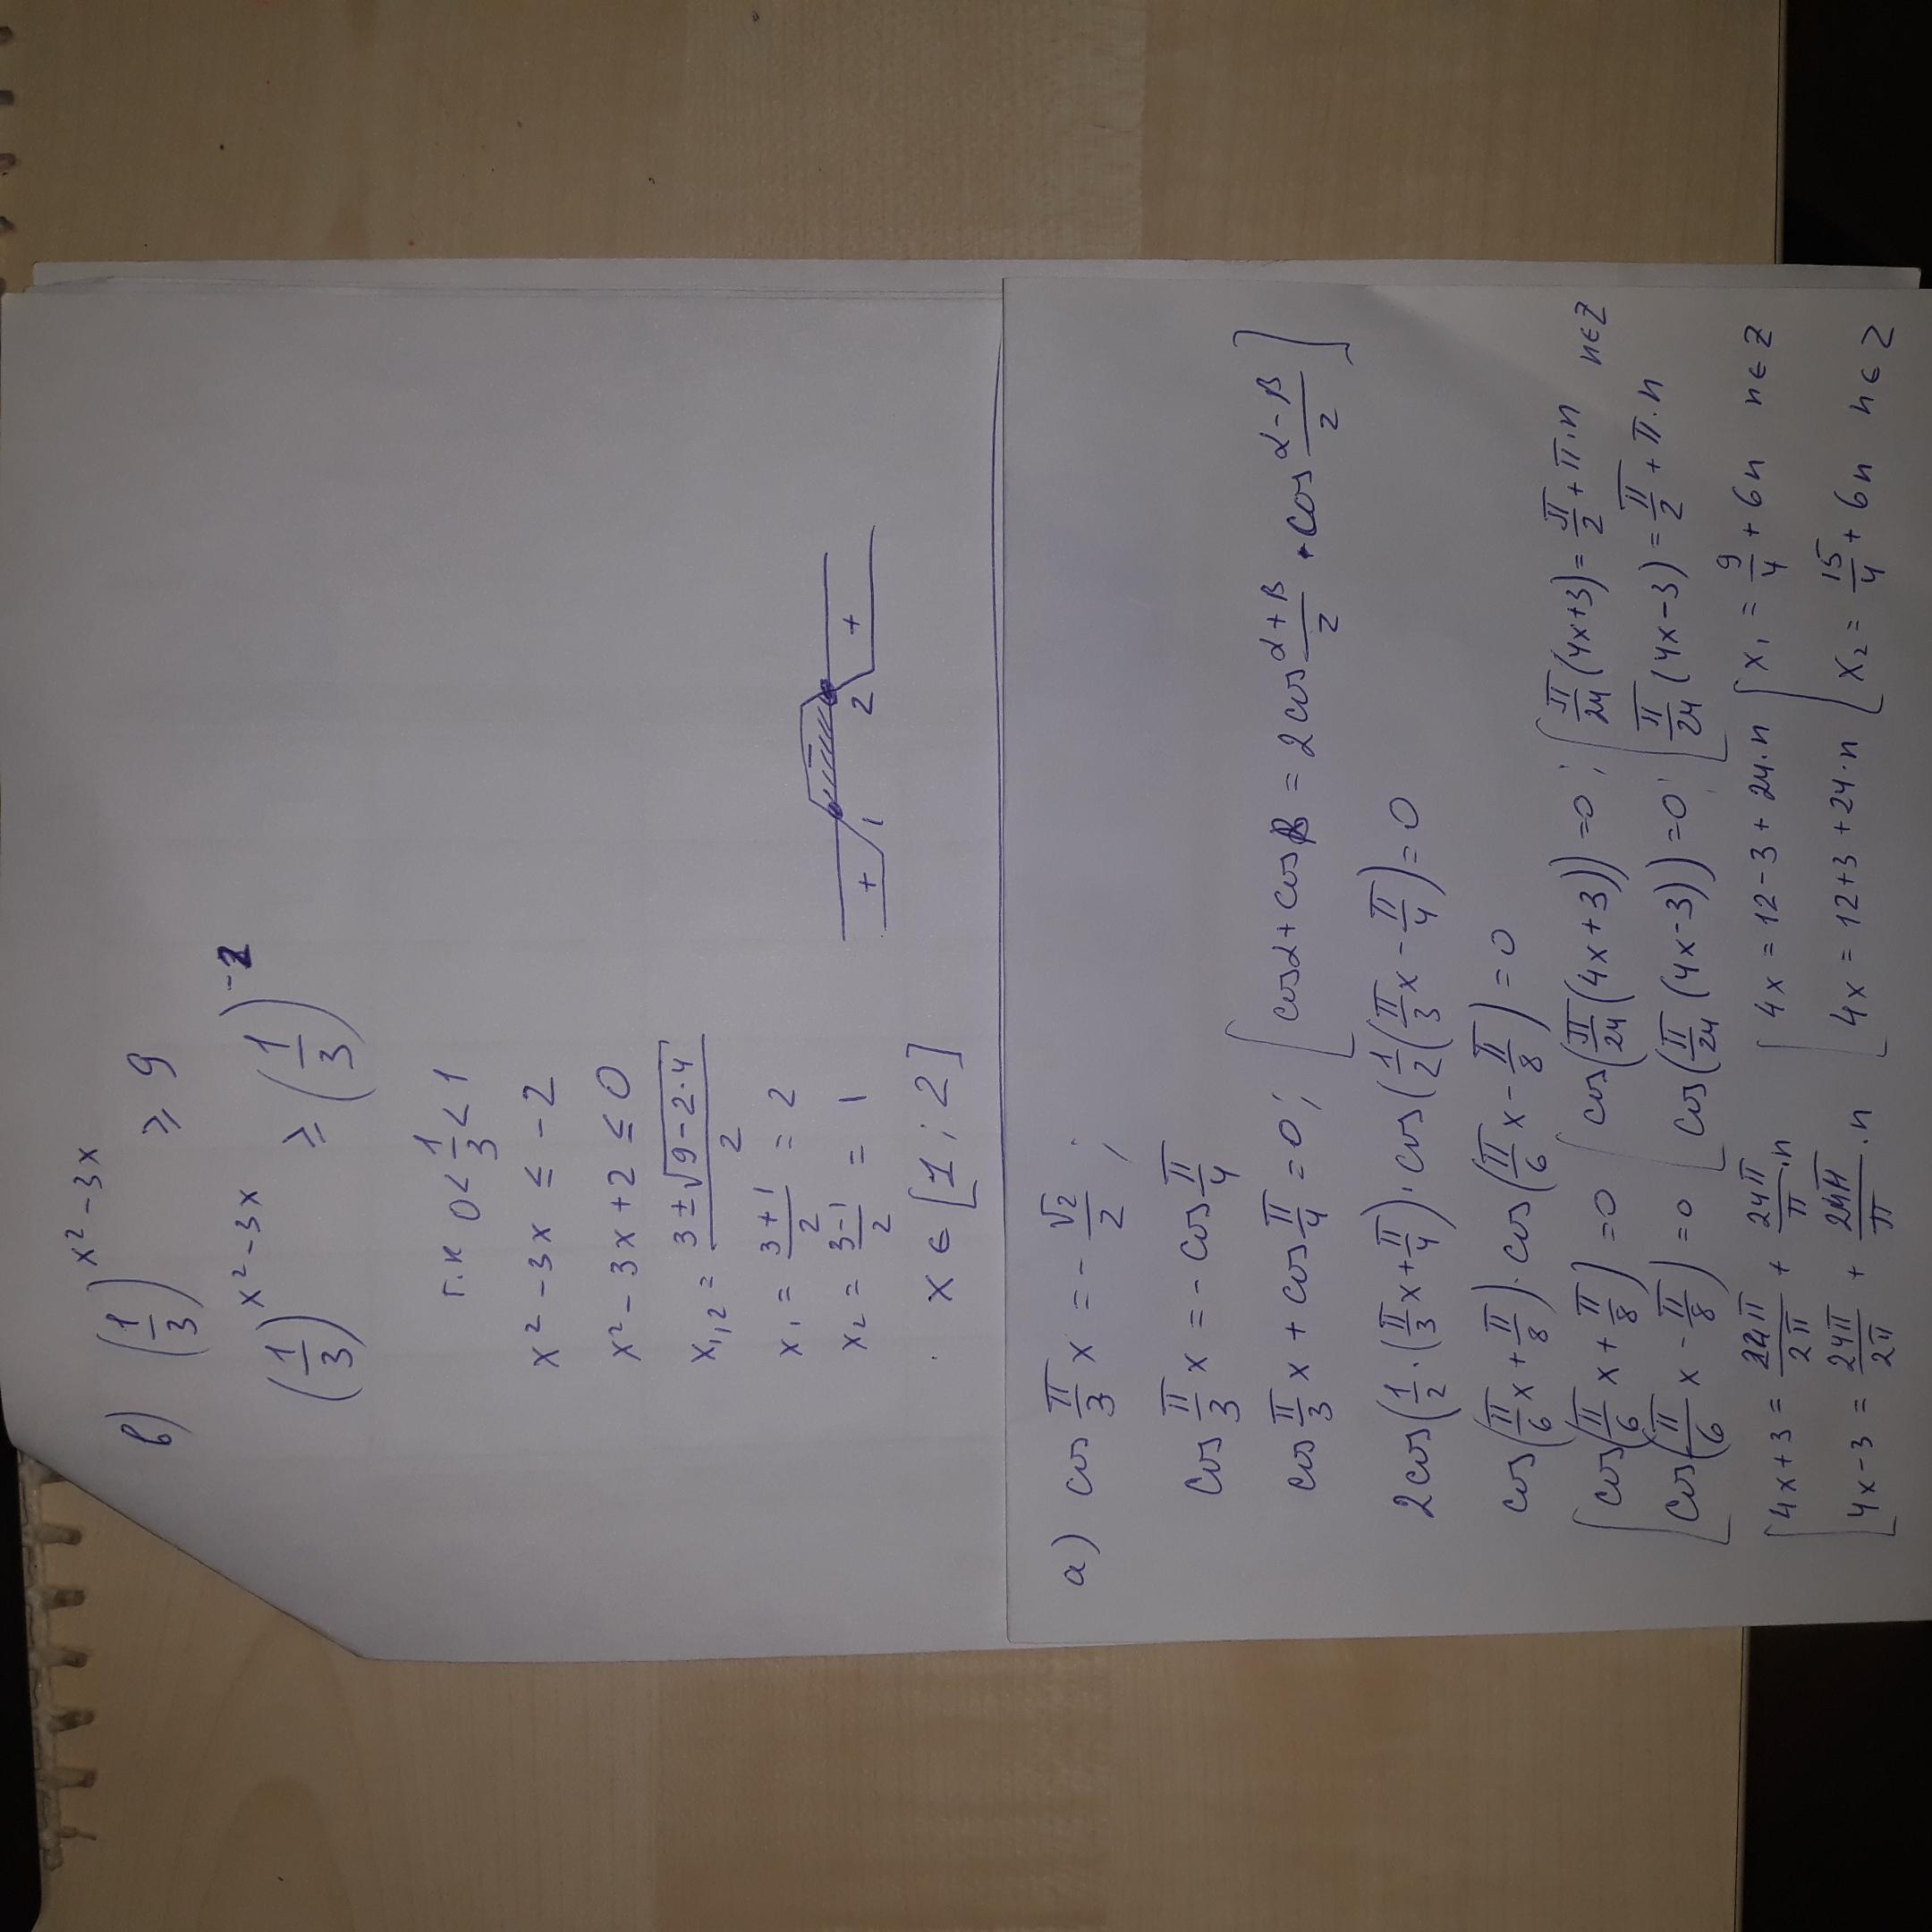 в) (1/3)^(x²-3x) ≥ 9
(1/3)^(x²-3x) ≥ (1/3)^(-2)
т.к 0 < 1/3 < 1
x² - 3x ≤ -2
x² - 3x + 2 ≤ 0
x₁,₂ = (3 ± √(9-2·4))/2
x₁ = (3+1)/2 = 2
x₂ = (3-1)/2 = 1
+ 1 - 2 +
x ∈ [1; 2]
а) cos π/3 x = - √2/2 ;
cos π/3 x = - cos π/4
cos π/3 x + cos π/4 = 0; [cosα + cosβ = 2cos (α+β)/2 · cos (α-β)/2]
2cos(1/2·(π/3 x + π/4)·cos(1/2(π/3 x - π/4) = 0
cos(π/6 x + π/8)·cos(π/6 x - π/8) = 0
[cos(π/6 x + π/8) = 0 [cos(π/24(4x+3)) = 0 ; [π/24(4x+3) = π/2 + π·n n∈Z
[cos(π/6 x - π/8) = 0 [cos(π/24(4x-3)) = 0 ; [π/24(4x-3) = π/2 + π·n
[4x+3 = 24π/2π + 24π/π·n [4x = 12-3+24·n [x₁ = 9/4 + 6n n∈Z
[4x-3 = 24π/2π + 24π/π·n [4x = 12+3+24·n [x₂ = 15/4 + 6n n∈Z